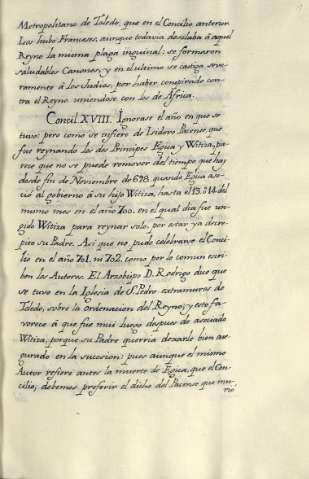 Metropolitano de Toledo, que en el Concilio anterior
los hubo Franceses, aunque todavia desolaba à aquel
Reyno la misma plaga inguinal; se formaron
saludables Canones; y en el ultimo se castiga seve
ramente à los Judios, por haber conspirado con
tra el Reyno uniendose con los de Africa.
Concil. XVIII. Ignorase el año en que se
tuvo: pero como se infiere de Isidoro Pacense, que
fue reynando los dos Principes Egica y Witiza, pa
rece que no se puede remover del tiempo que hay
desde fin de Noviembre de 698. quando Egica aso
ció al gobierno à su hijo Witiza, hasta el 13. del
mismo mes en el año 700. en el qual dia fue un
gido Witiza para reynar solo, por estar ya decre
pito su Padre. Asi que no pudo celebrarse el Conci
lio en el año 701. ni 702. como por lo comun escri
ben los Autores. El Arzobispo D. Rodrigo dice que
se tuvo en la Iglesia de S. Pedro extramuros de
Toledo, sobre la Ordenacion del Reyno; y esto fa
vorece à que fue mui luego despues de asociado
Witiza, porque su Padre querria dexarle bien ase
gurado en la sucesion: pues aunque el mismo
Autor refiere antes la muerte de Egica, que el Con
cilio, debemos preferir el dicho del Pacense que mu
rio